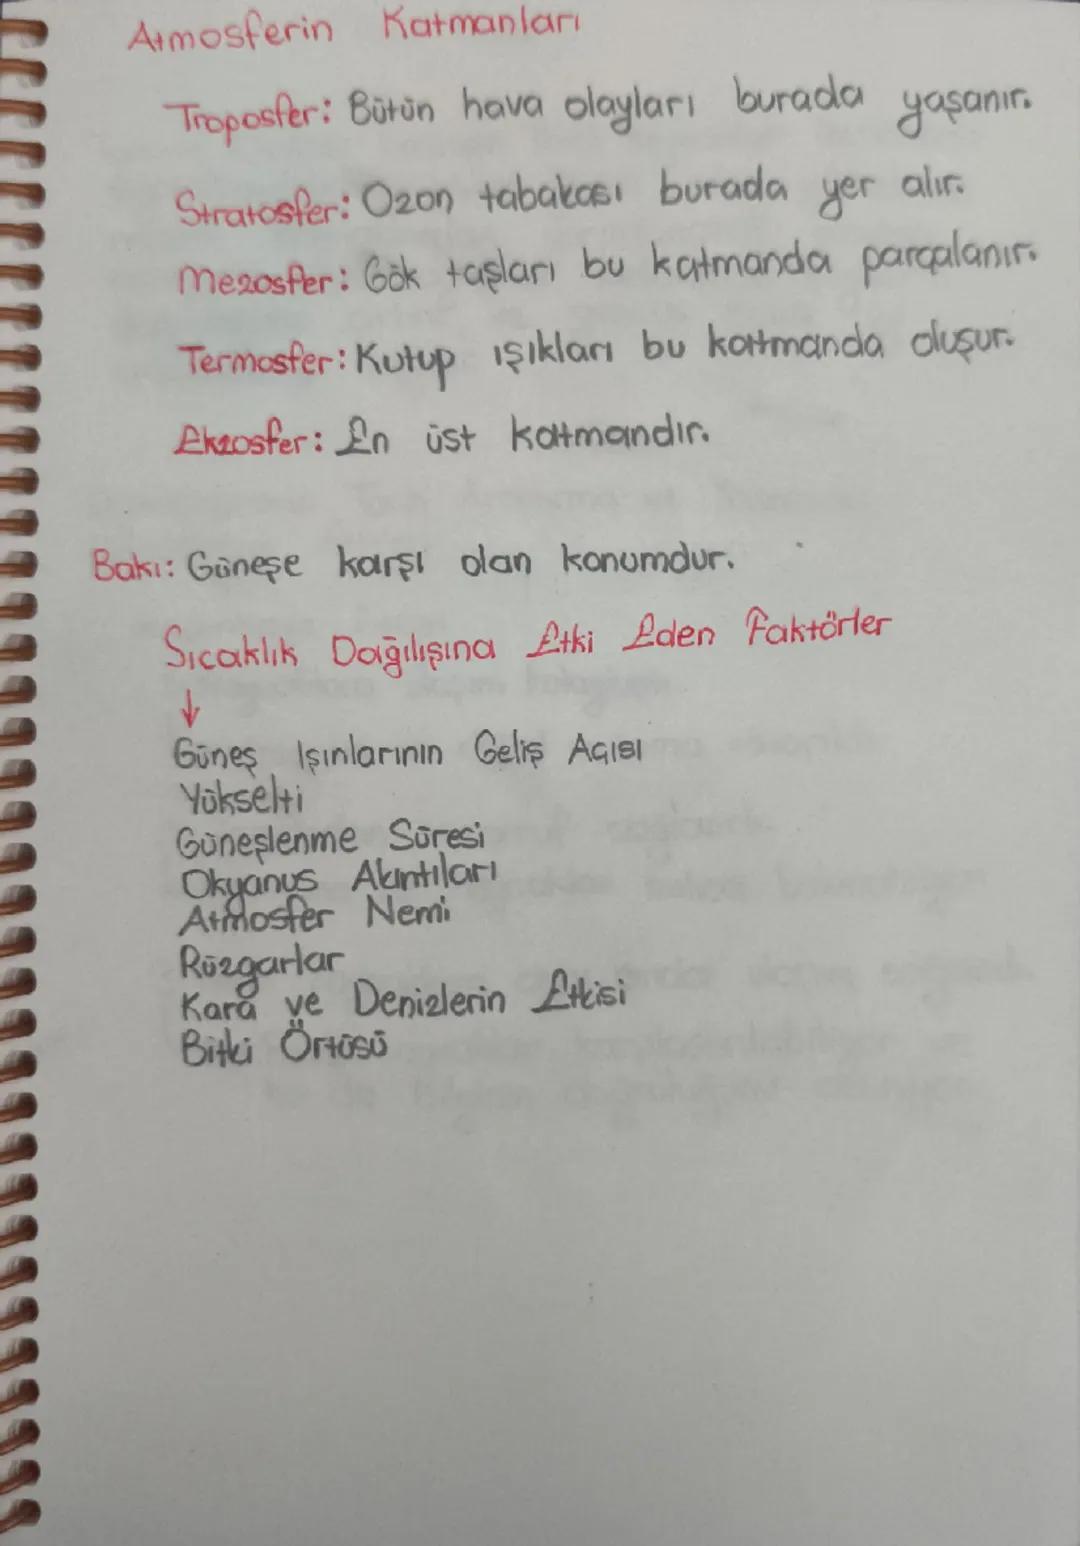 Atmosferin Katmanları
Troposfer: Bütün hava olayları burada yaşanır.
Stratosfer: Ozon tabakası burada yer alır.
Mezosfer: Gök taşları bu katmanda parçalanır.
Termosfer: Kutup ışıkları bu katmanda oluşur.
Ekzosfer: En üst katmandır.
Bakı: Güneşe karşı olan konumdur.
Sıcaklık Dağılışına Etki Eden Faktörler
↓
Güneş Işınlarının Geliş Açısı
Yükselti
Güneşlenme Süresi
Okyanus Akıntıları
Atmosfer Nemi
Rüzgarlar
Kara ve Denizlerin Etkisi
Bitki Örtüsü